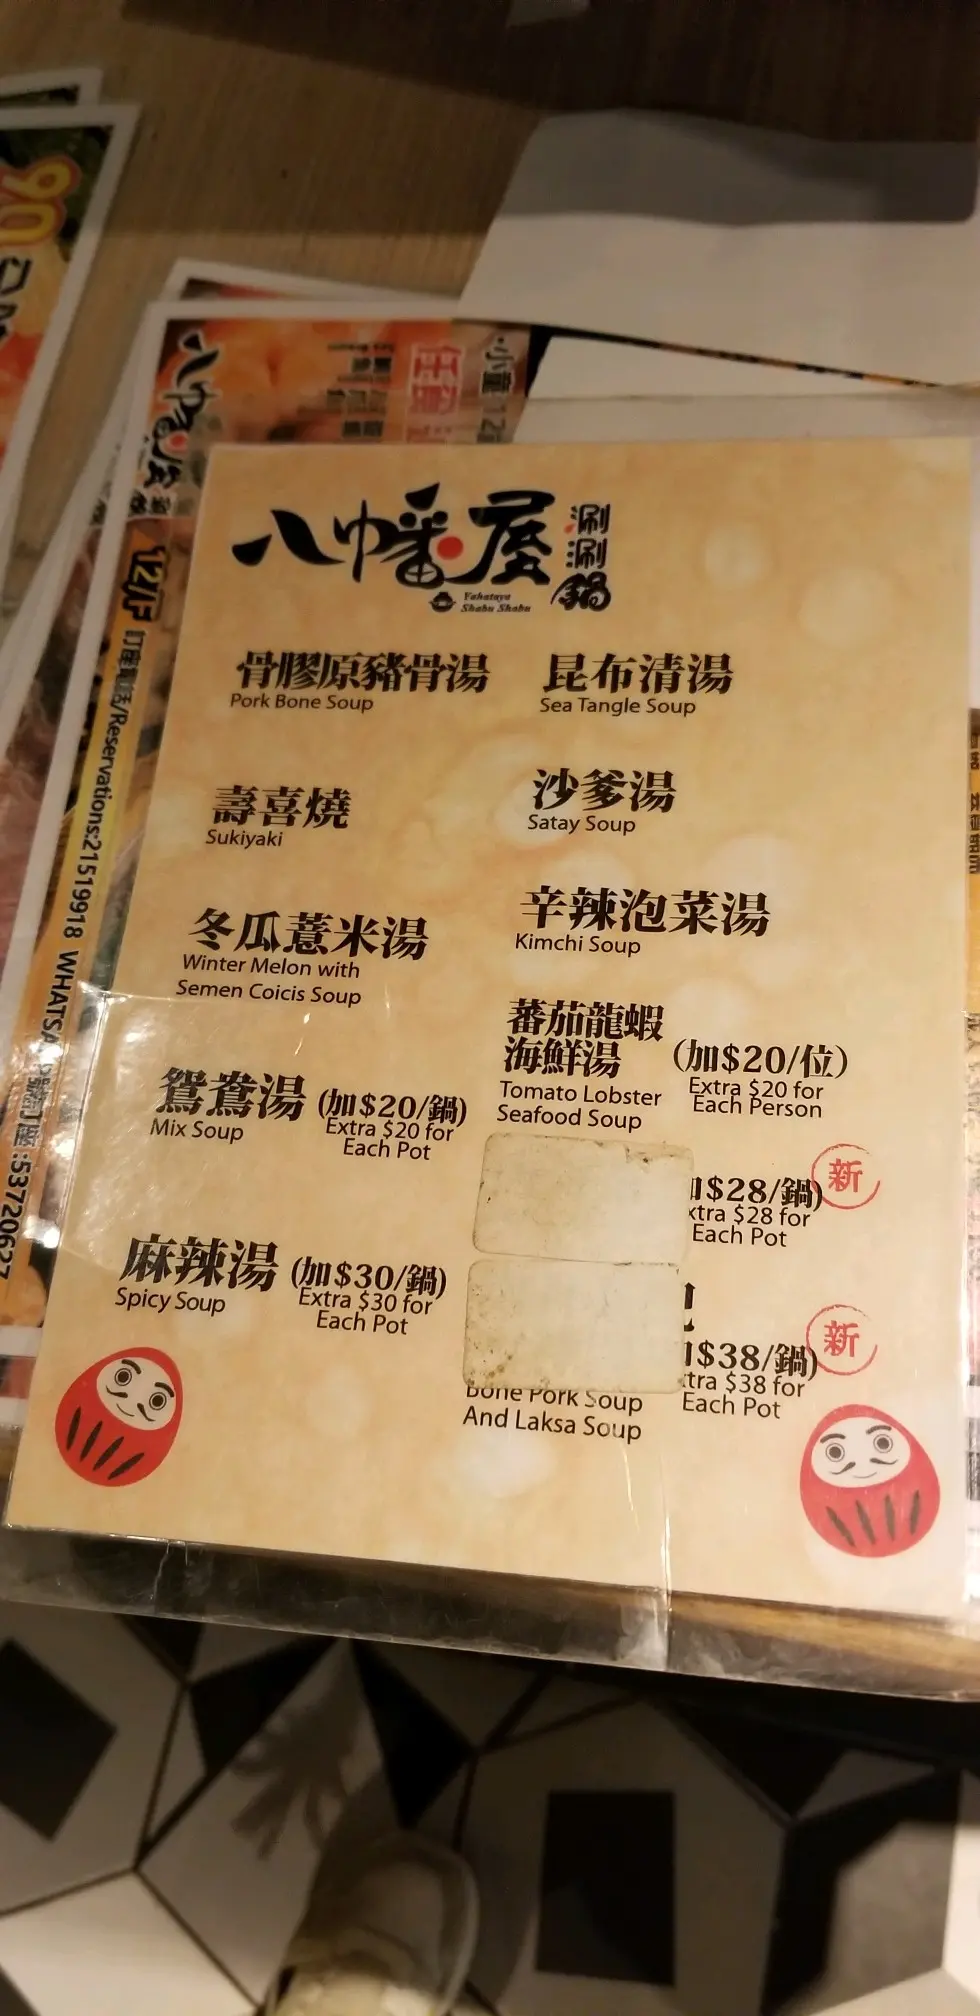 90
八幡屋
12/F 訂座電話/Reservations:21519918 WHATSA
訂座:53720627
任食
八幡屋 涮涮鍋
Yahataya
Shabu Shabu
骨膠原豬骨湯
Pork Bone Soup
昆布清湯
Sea Tangle Soup
壽喜燒
Sukiyaki
沙爹湯
Satay Soup
冬瓜薏米湯
Winter Melon with
Semen Coicis Soup
辛辣泡菜湯
Kimchi Soup
鴛鴦湯 (加$20/鍋)
Mix Soup Extra $20 for
Each Pot
蕃茄龍蝦
海鮮湯 (加$20/位)
Tomato Lobster Extra $20 for
Seafood Soup Each Person
$28/鍋) 新
xtra $28 for
Each Pot
麻辣湯 (加$30/鍋)
Spicy Soup Extra $30 for
Each Pot
$38/鍋) 新
tra $38 for
Each Pot
Bone Pork Soup
And Laksa Soup